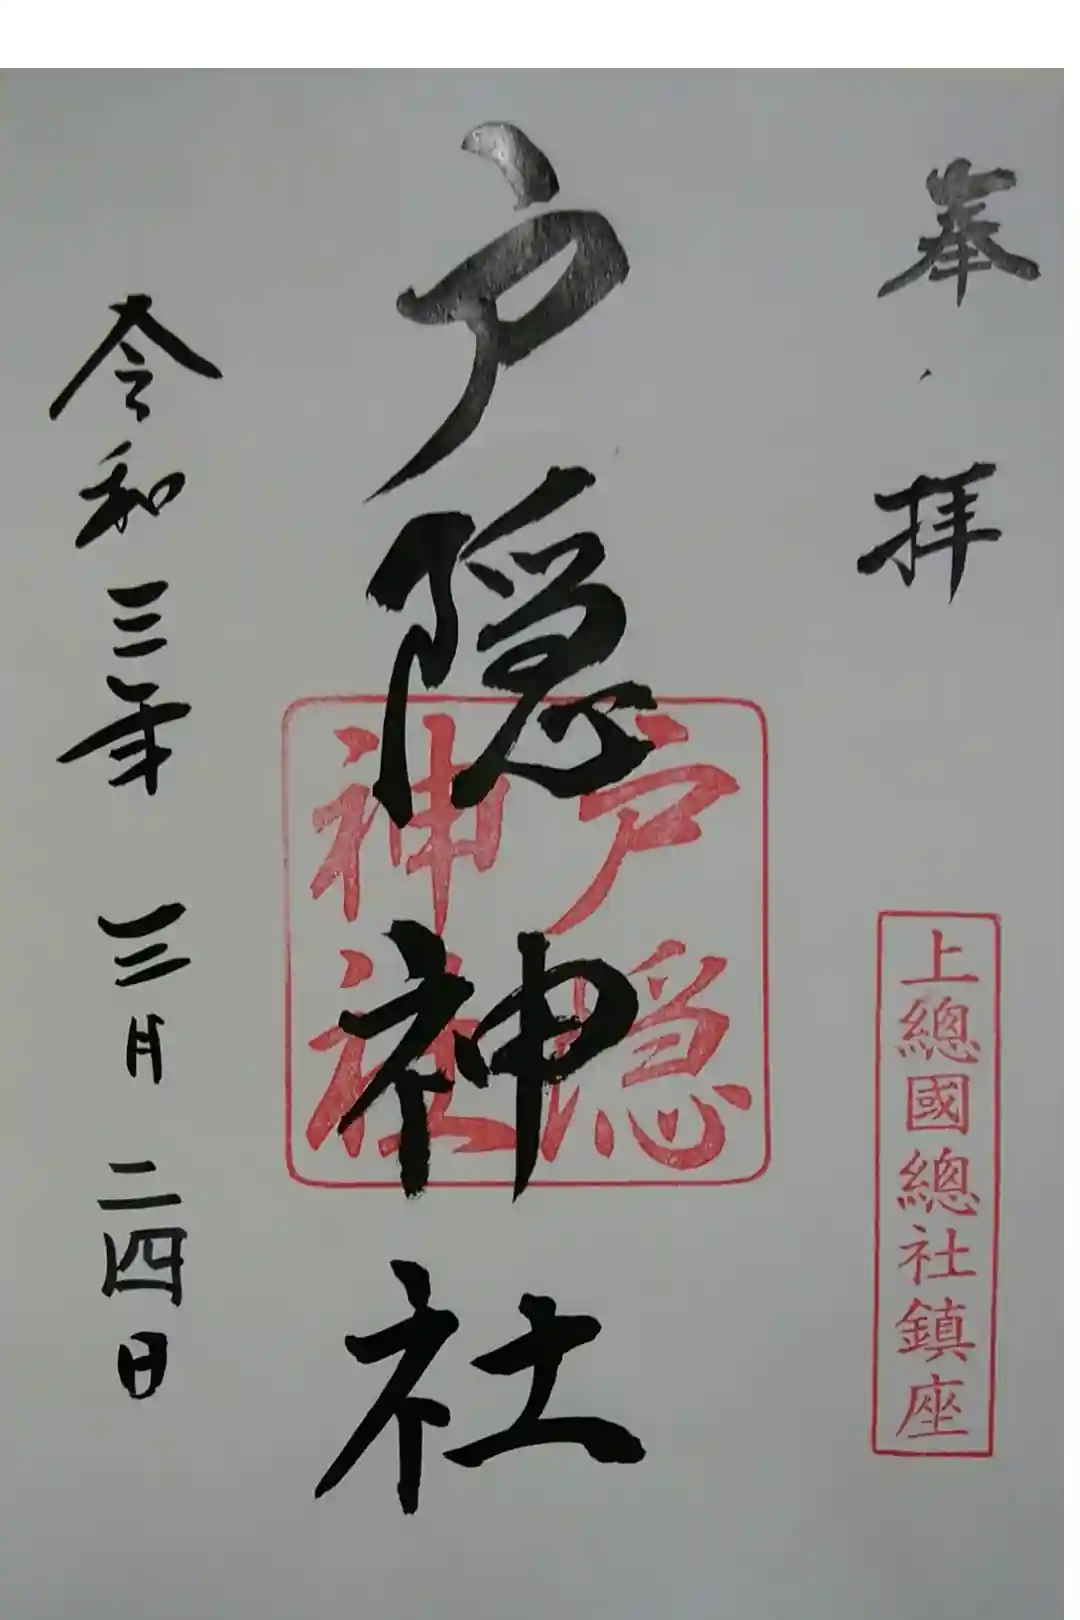 奉拝
上總國總社鎮座
戸隠神社
戸隠
神社
令和三年三月二四日